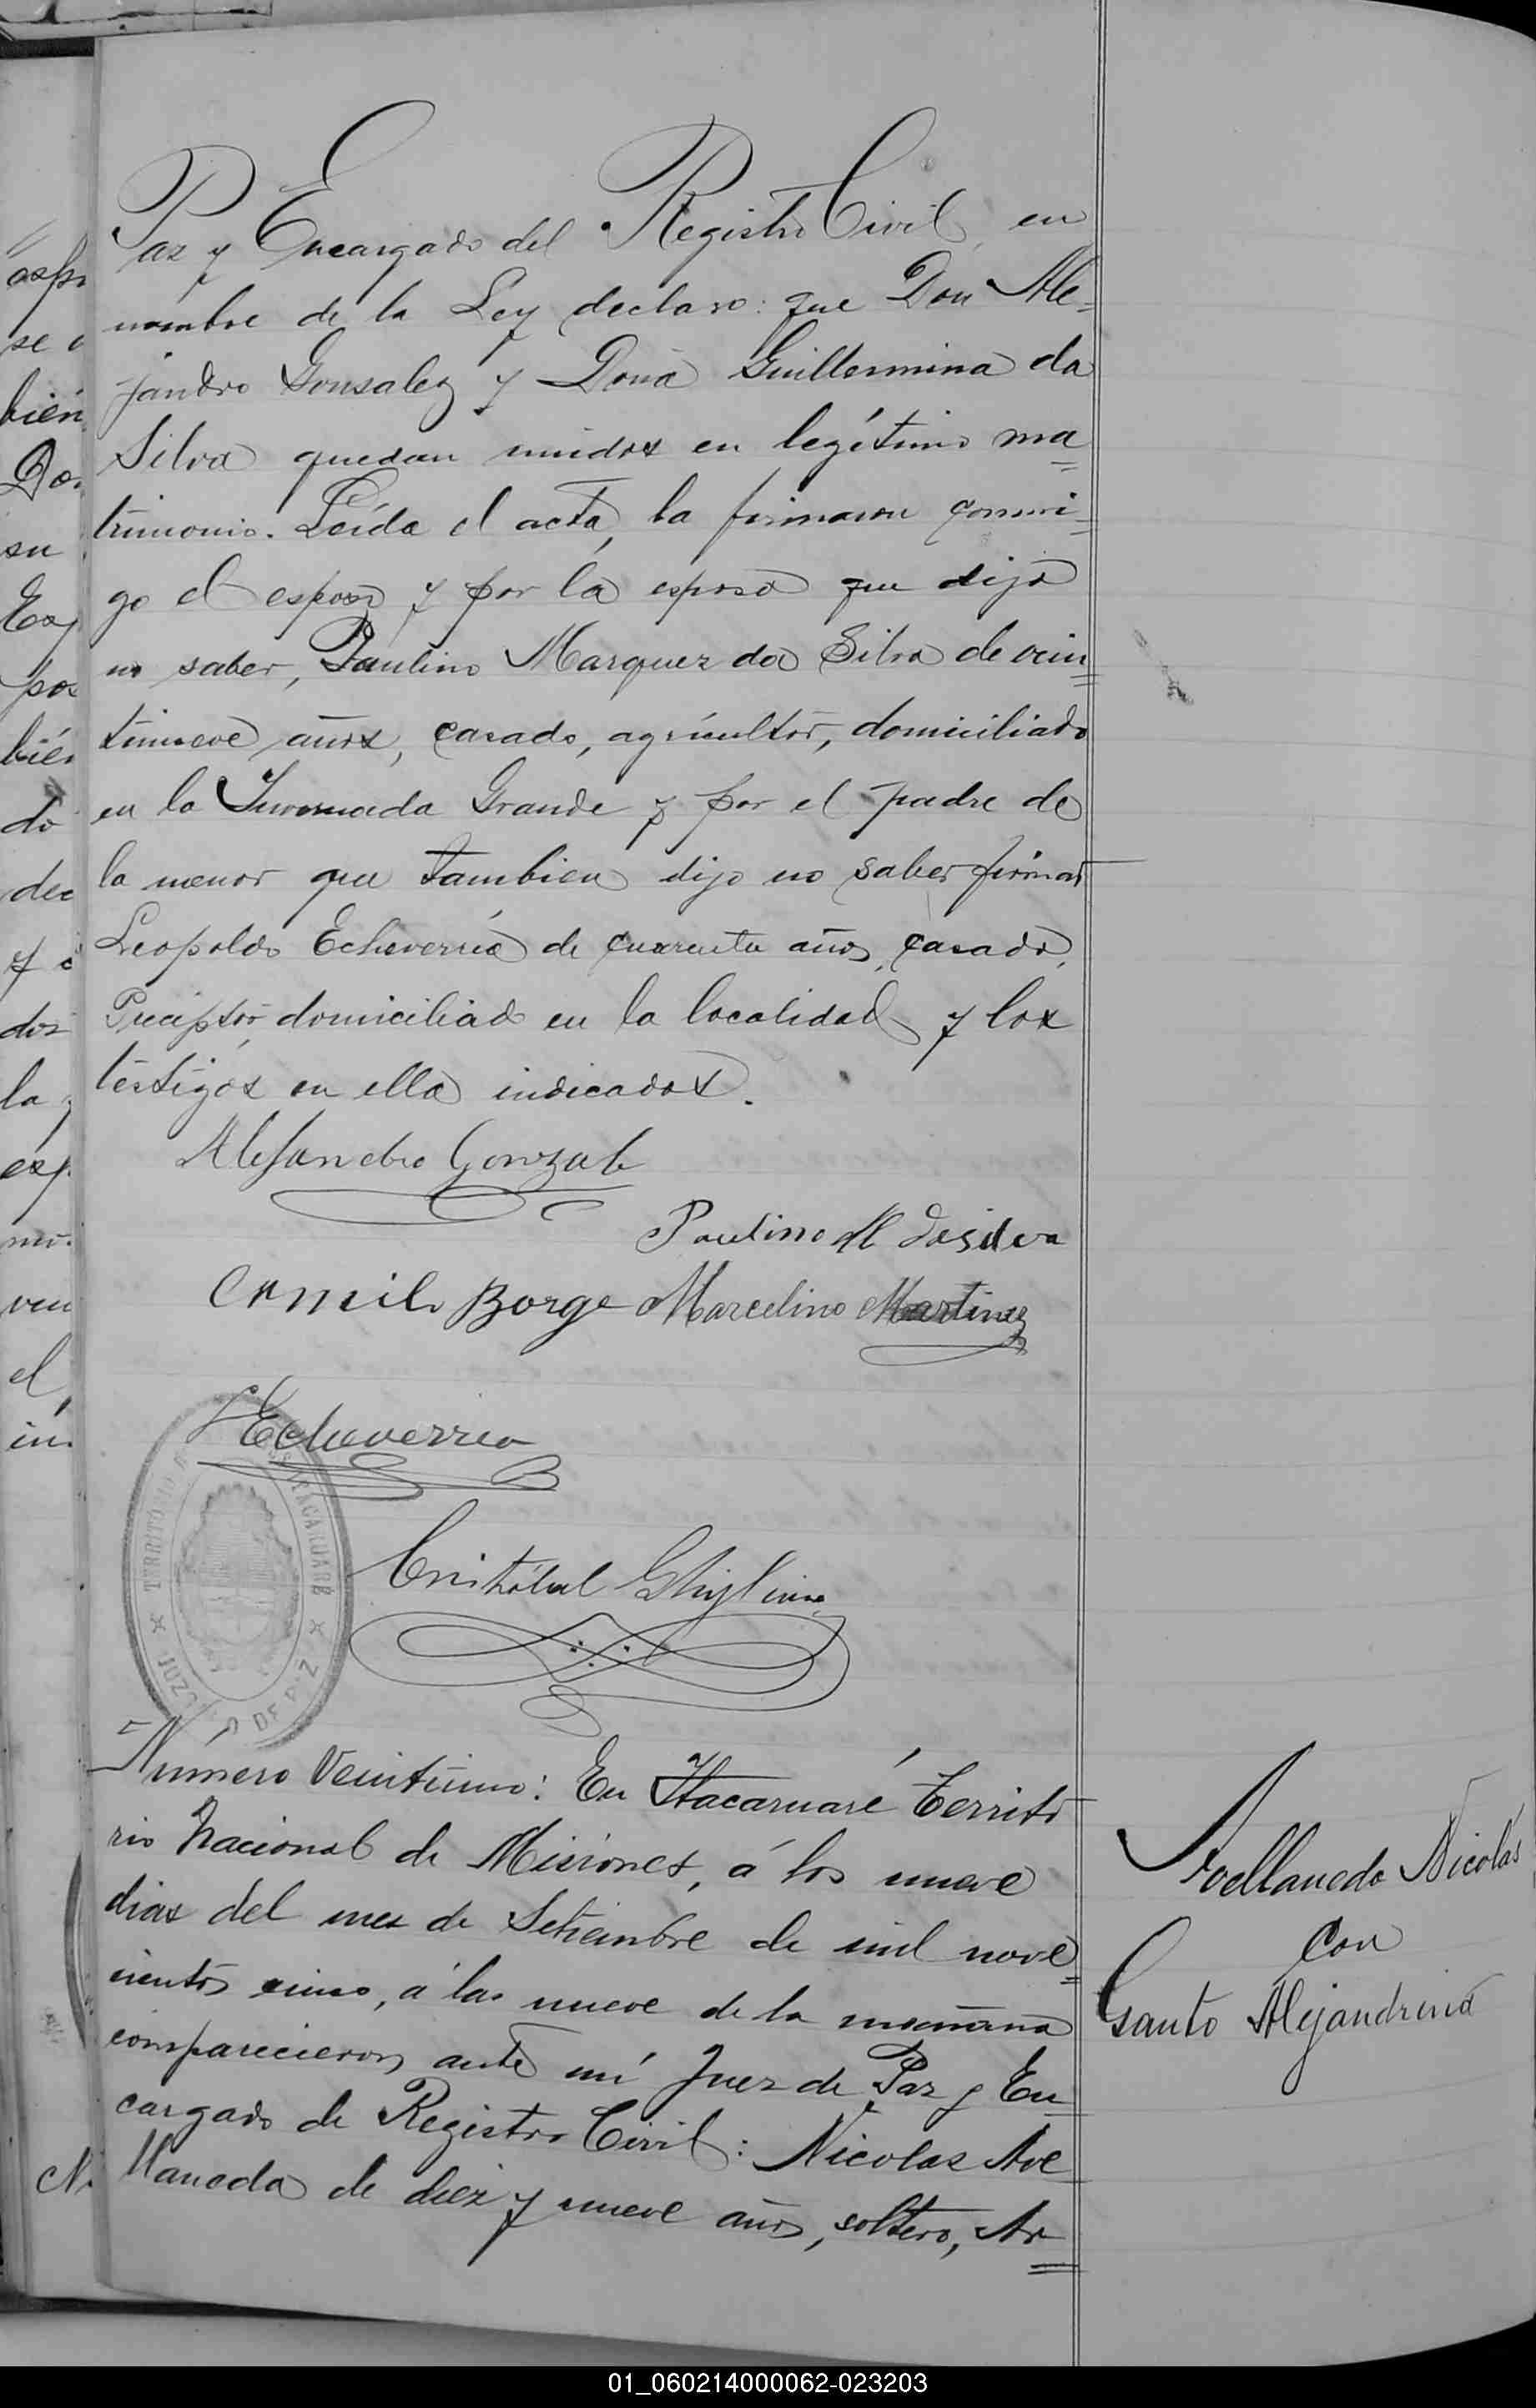 Paz y Encargado del Registro Civil, en
nombre de la Ley declaro: que Don Ale=
jandro Gonsalez y Doña Guillermina da
Silva quedan unidos en legítimo ma=
trimonio. Leída el acta, la firmaron conmi=
go el esposo y por la esposa que dijo
no saber, Paulino Marquez da Silva de vein=
tinueve años, casado, agricultor, domiciliado
en la Grande y por el padre de
la menor que tambien dijo no saber firmar
Leopoldo Echeverría de cuarenta años, casado,
Preceptor domiciliado en la localidad y los
testigos en ella indicados.
Alejandro Gonzale
Paulino M dasilva
Camilo Borge Marcelino Martinez
LEcheverria
TERRITORIO ITACARUARÉ
JUZGADO DE PAZ
Cristóbal
Número Veintiuno: En Itacaruaré Territo
rio Nacional de Misiones, á los nueve
dias del mes de Setiembre de mil nove=
cientos cinco, á las nueve de la mañana
comparecieron ante mí Juez de Paz y En
cargado de Registro Civil: Nicolas Ave
llaneda de diez y nueve años, soltero, Ar=
Avellaneda Nicolás
Con
Santo Alejandrina
aspo
se
bien
Do
su
Esp
pos
bien
do
dec
y
dos
la
esp
ven
el
in
01_060214000062-023203